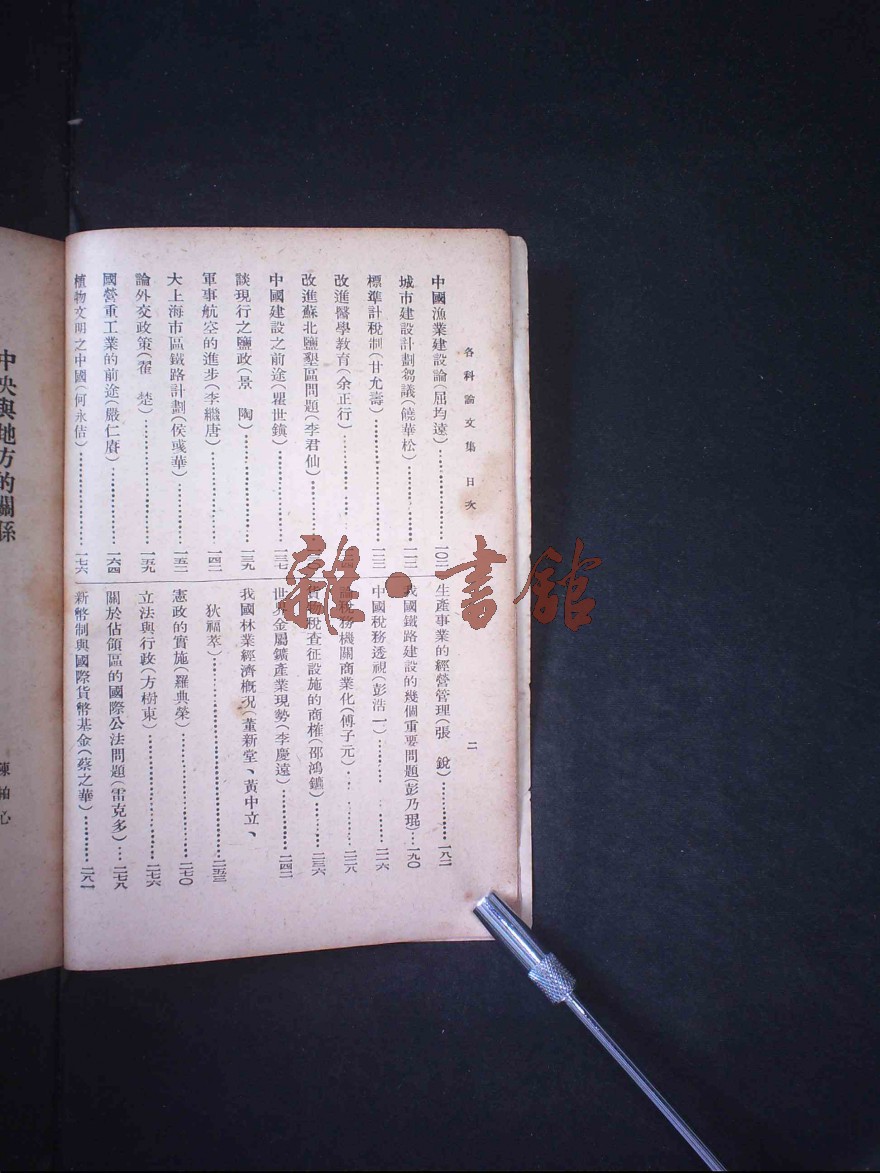 各科論文集 目次
二
中國漁業建設論(屈均遠)…………一〇二
城市建設計劃芻議(饒華松)…………一一二
標準計稅制(甘允壽)…………一二二
改進醫學教育(余正行)…………
改進蘇北鹽墾區問題(李君仙)…………
中國建設之前途(瞿世鎮)…………一三七
談現行之鹽政(景 陶)…………一三九
軍事航空的進步(李繼唐)…………一四二
大上海市區鐵路計劃(侯彧華)…………一五二
論外交政策(翟 楚)…………一五九
國營重工業的前途(嚴仁賡)…………一六四
植物文明之中國(何永佶)…………一七六
生產事業的經營管理(張 銳)…………一八二
我國鐵路建設的幾個重要問題(彭乃琨)…一九〇
中國稅務透視(彭浩一)…………二一六
論稅務機關商業化(傅子元)…………二二八
貨物稅查征設施的商榷(邵鴻鑣)…………二三六
世界金屬鑛產業現勢(李慶遠)…………二四二
我國林業經濟概況(董新堂、黃中立、
狄福荃)…………二五三
憲政的實施(羅典榮)…………二七〇
立法與行政(方樹東)…………二七六
關於佔領區的國際公法問題(雷克多)…二七八
新幣制與國際貨幣基金(蔡之華)…………二八一
中央與地方的關係
陳柏心
雜·書館